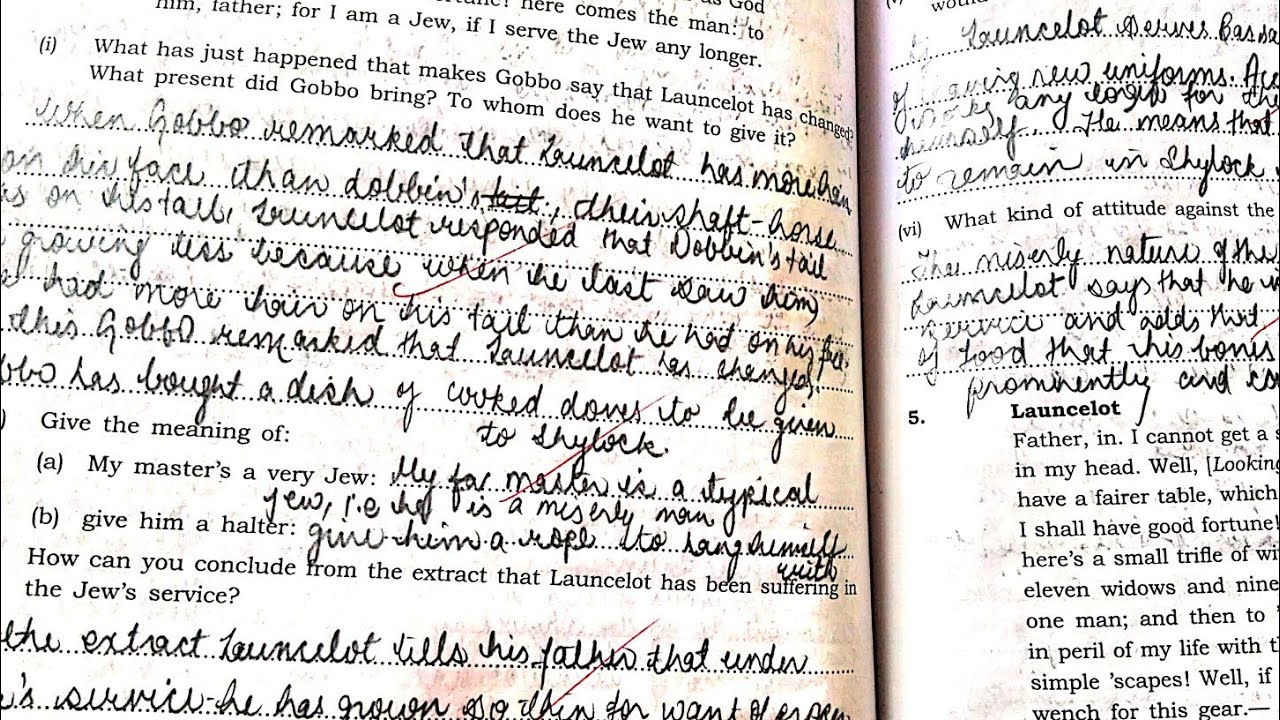 as God
here comes the man: to
him, father; for I am a Jew, if I serve the Jew any longer.
(i) What has just happened that makes Gobbo say that Launcelot has changed?
What present did Gobbo bring? To whom does he want to give it?
When Gobbo remarked that Launcelot has more hair
on his face than dobbin's tail, their shaft-horse
on his tail, Launcelot responded that Dobbin's tail
growing less because when he last saw him,
had more hair on his tail than he had on his face,
this Gobbo remarked that Launcelot has changed.
has bought a dish of cooked doves to be given
to Shylock.
Give the meaning of:
(a) My master's a very Jew: My far master is a typical
jew, i.e he is a miserly man
(b) give him a halter: give him a rope to hang himself
with
How can you conclude from the extract that Launcelot has been suffering in
the Jew's service?
the extract Launcelot tells his father that under
service he has grown so thin for want of proper
Launcelot serves
new uniforms.
any longer for
himself. He means that
to remain in Shylock
(vi) What kind of attitude against the
The miserly nature of the
Launcelot says that he
service and adds that
of food that his bones
prominently and
5. Launcelot
Father, in. I cannot get a
in my head. Well, [Looking
have a fairer table, which
I shall have good fortune!
here's a small trifle of wi
eleven widows and nine
one man; and then to
in peril of my life with t
simple 'scapes! Well, if
wench for this gear.—